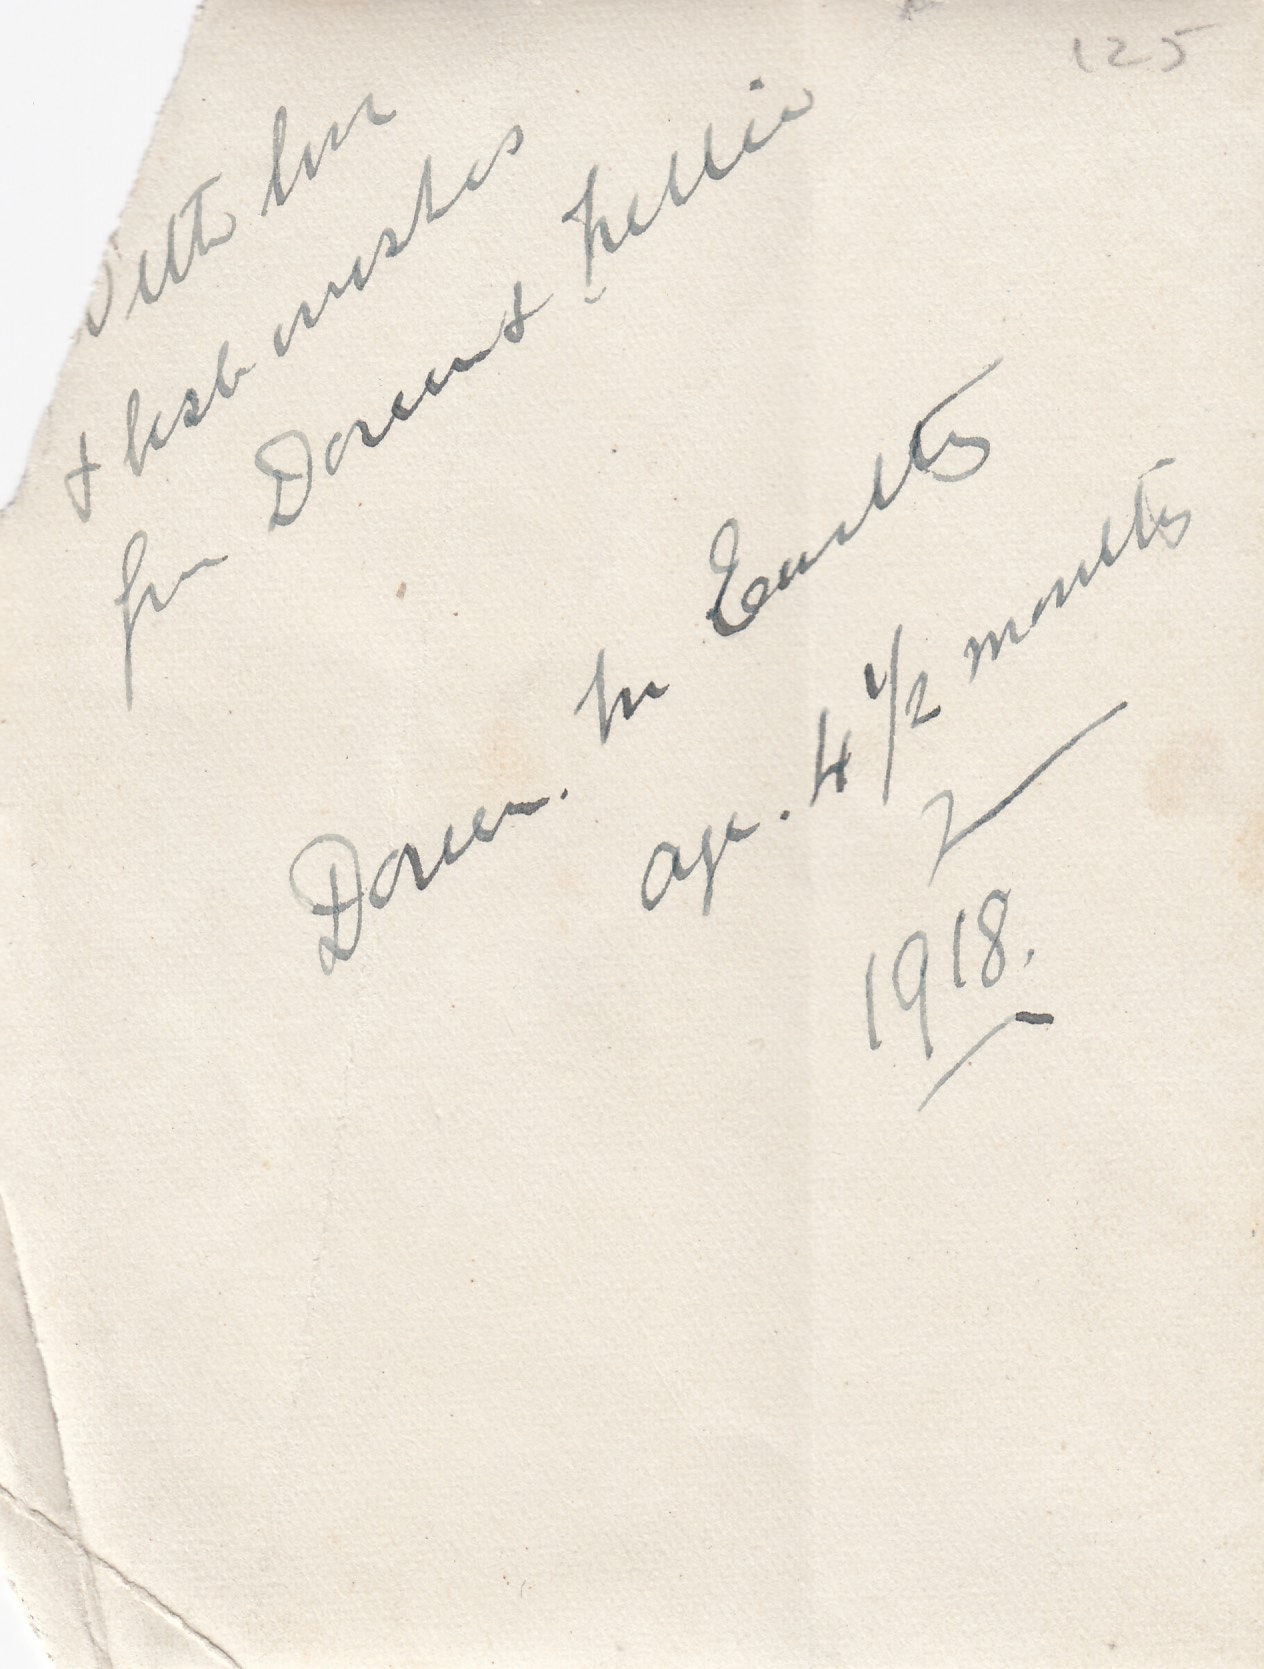 125
With love
& best wishes
from Doreen & Nellie
Doreen. M
age. 4 1/2 months
1918.